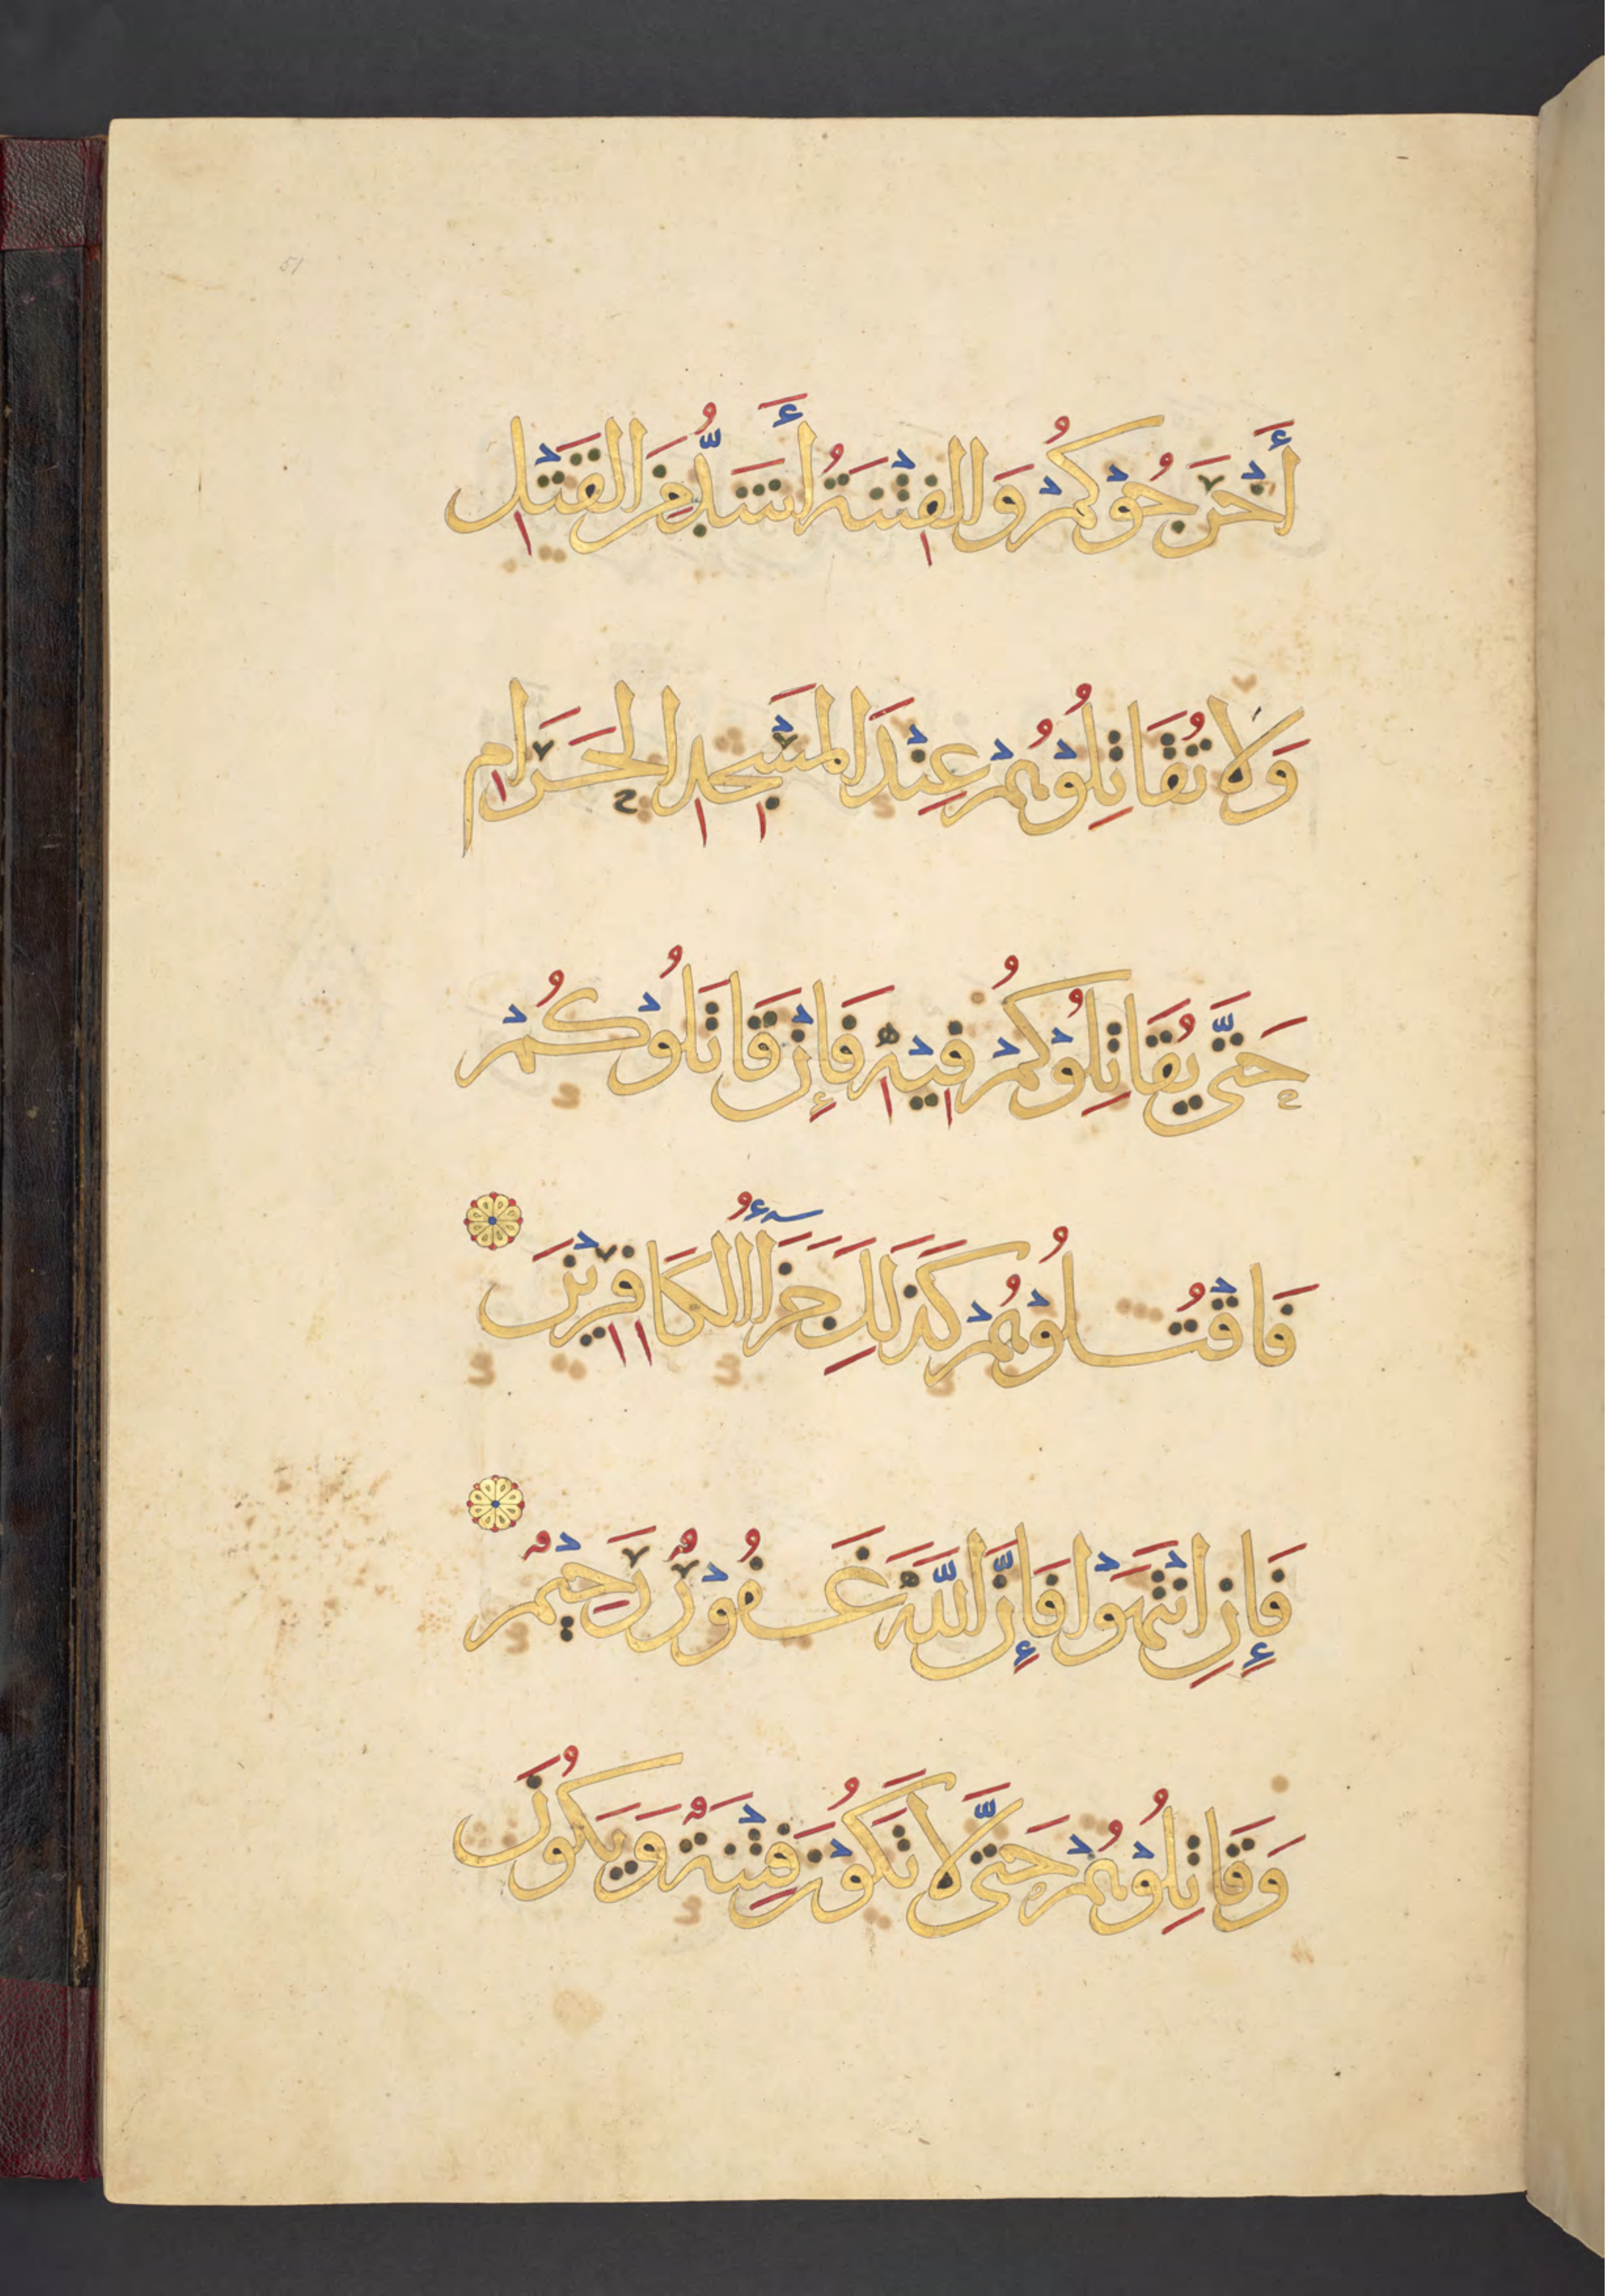 51
أَخْرَجُوْكُمْ وَالفِتْنَةُ أَشَدُّ مِنَ القَتْلِ
وَلَا تُقَاتِلُوْهُمْ عِنْدَ المَسْجِدِ الحَرَامِ
حَتَّى يُقَاتِلُوْكُمْ فِيْهِ فَإِنْ قَاتَلُوْكُمْ
فَاقْتُلُوْهُمْ كَذَلِكَ جَزَاۤءُ الكَافِرِيْنَ
فَإِنِ انْتَهَوْا فَإِنَّ اللَّهَ غَفُوْرٌ رَحِيْمٌ
وَقَاتِلُوْهُمْ حَتَّى لَا تَكُوْنَ فِتْنَةٌ وَيَكُوْنَ